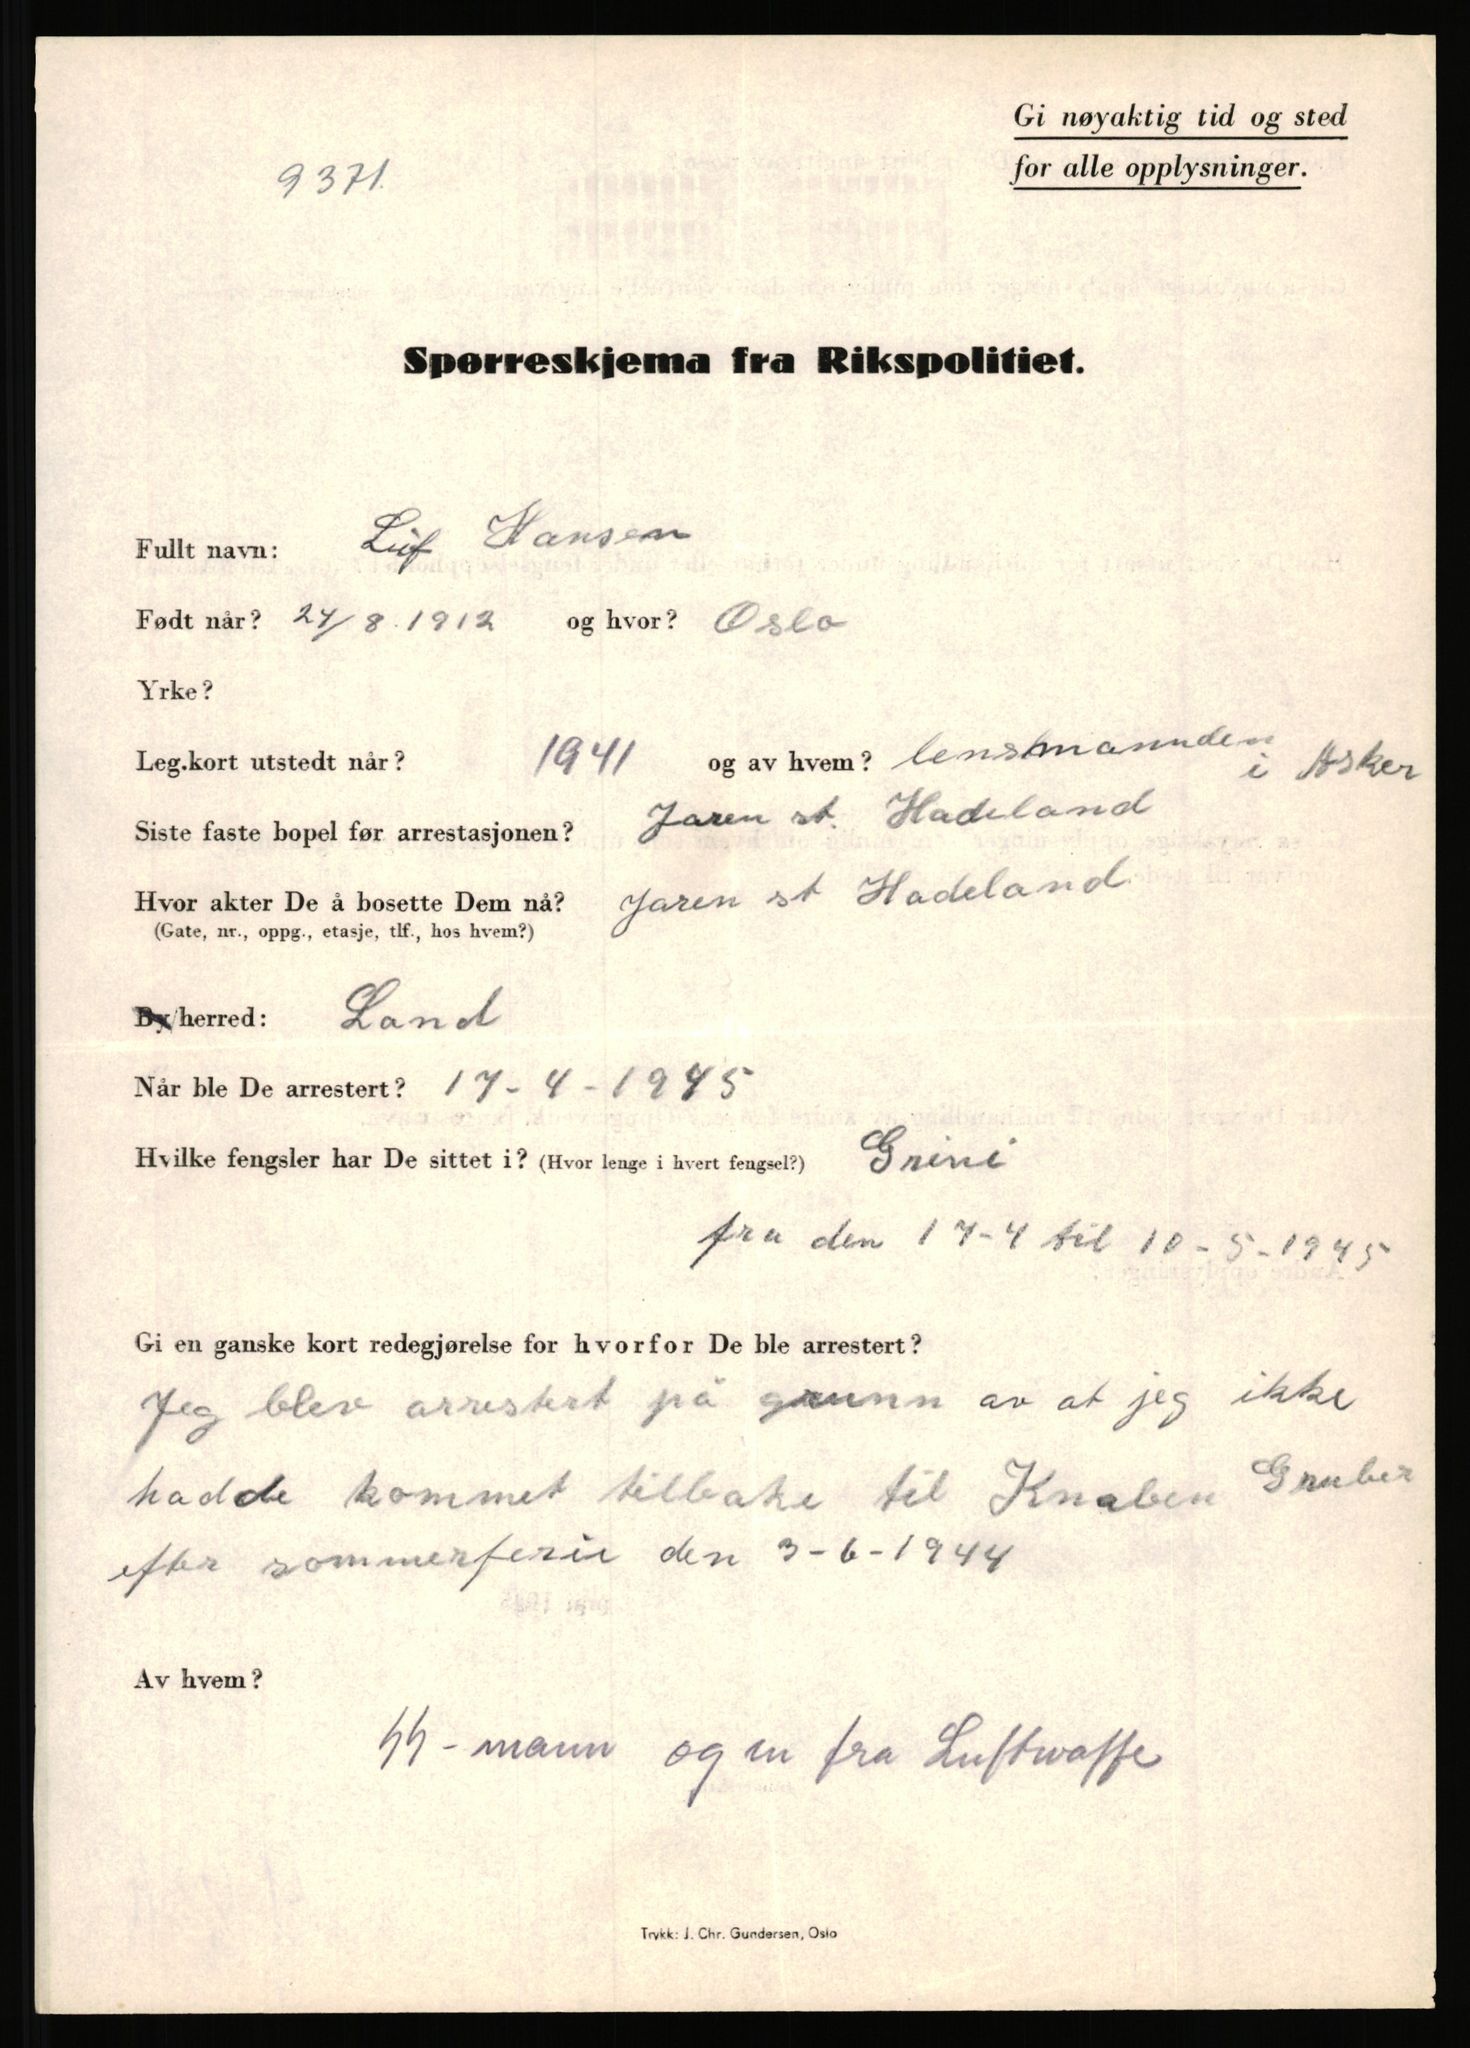 Gi nøyaktig tid og sted
for alle opplysninger.
9371.
Spørreskjema fra Rikspolitiet.
Fullt navn: Leif Hansen
Født når? 24/8. 1912 og hvor? Oslo
Yrke?
Leg.kort utstedt når? 1941 og av hvem? lensmannden i Asker
Siste faste bopel før arrestasjonen? Jaren st. Hadeland
Hvor akter De å bosette Dem nå? Jaren st Hadeland
(Gate, nr., oppg., etasje, tlf., hos hvem?)
By/herred: Land
Når ble De arrestert? 17-4-1945
Hvilke fengsler har De sittet i? (Hvor lenge i hvert fengsel?) Grini
fra den 17-4 til 10-5-1945
Gi en ganske kort redegjørelse for hvorfor De ble arrestert?
Jeg blev arrestert på grunn av at jeg ikke
hadde kommet tilbake til Knaben Gruber
efter sommerferie den 3-6-1944
Av hvem?
SS-mann og en fra Luftwaffe
Trykk: J. Chr. Gundersen, Oslo